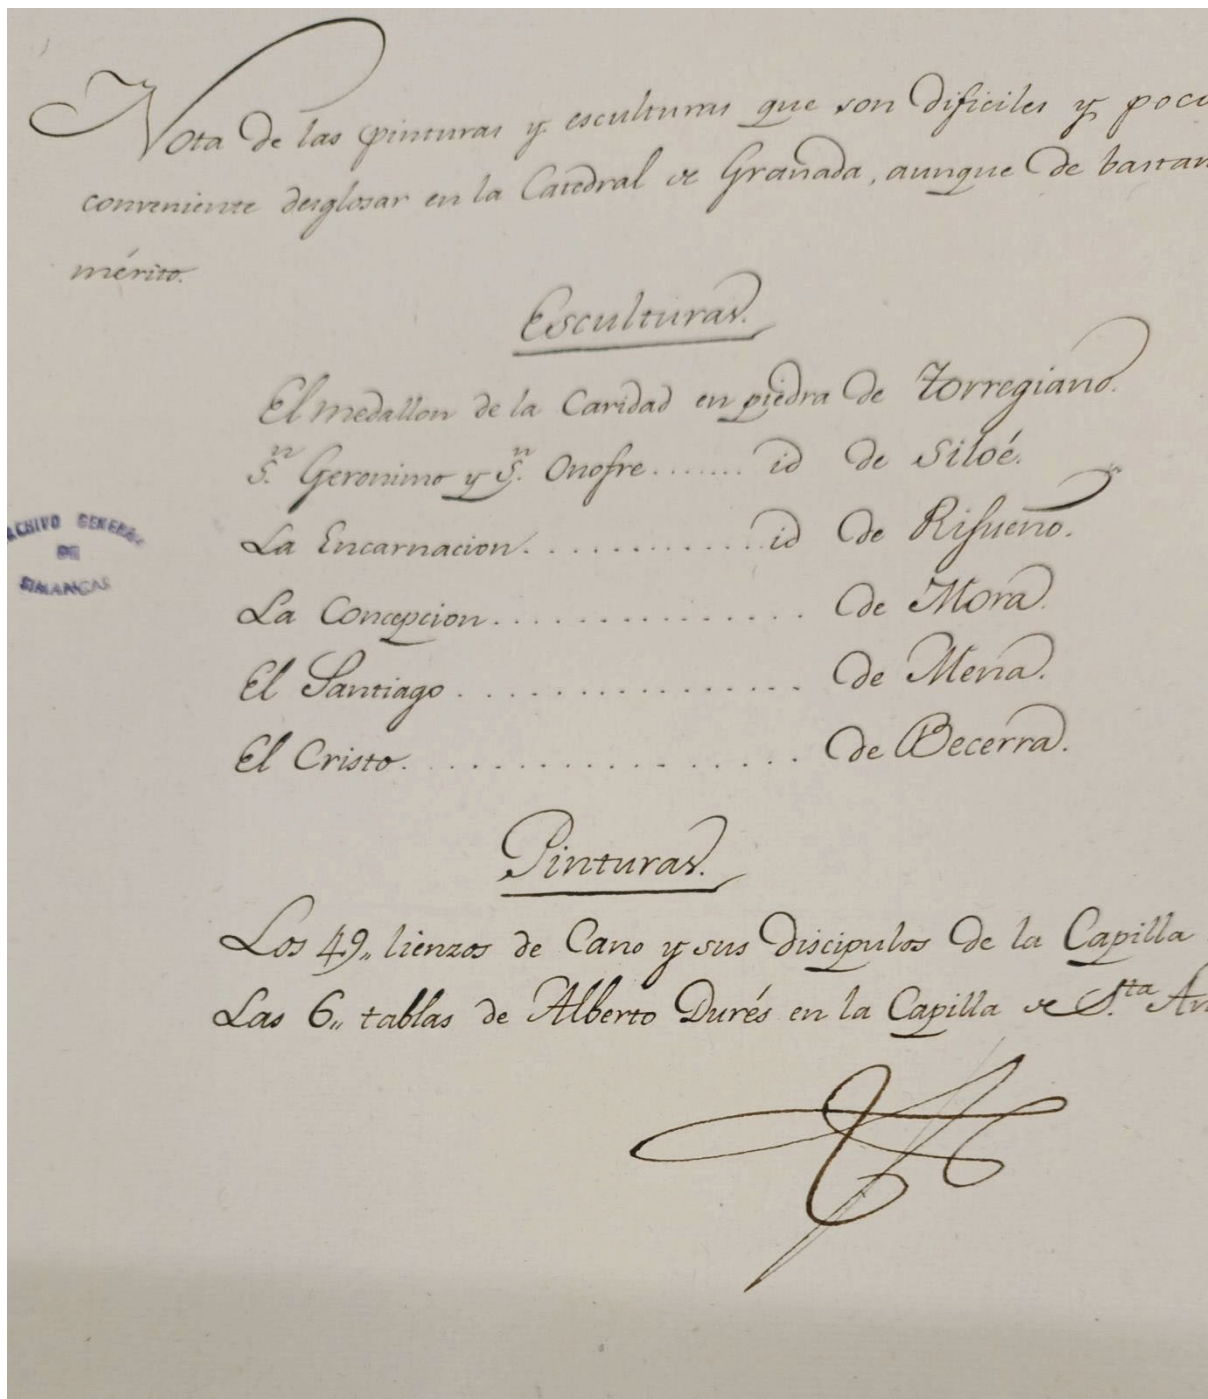 Nota de las pinturas y esculturas que son dificiles y poco
conveniente desglosar en la Catedral de Granada, aunque de bastan
mérito.
Esculturas.
El medallon de la Caridad en piedra de Torregiano.
S.n Geronimo y S.n Onofre....... id de Siloé.
La Encarnacion............. id de Risueño.
La Concepcion............... de Mora.
El Santiago................. de Mena.
El Cristo................... de Becerra.
ARCHIVO GENERAL
DE
SIMANCAS
Pinturas.
Los 49,, lienzos de Cano y sus discipulos de la Capilla
Las 6,, tablas de Alberto Durés en la Capilla de S.ta An